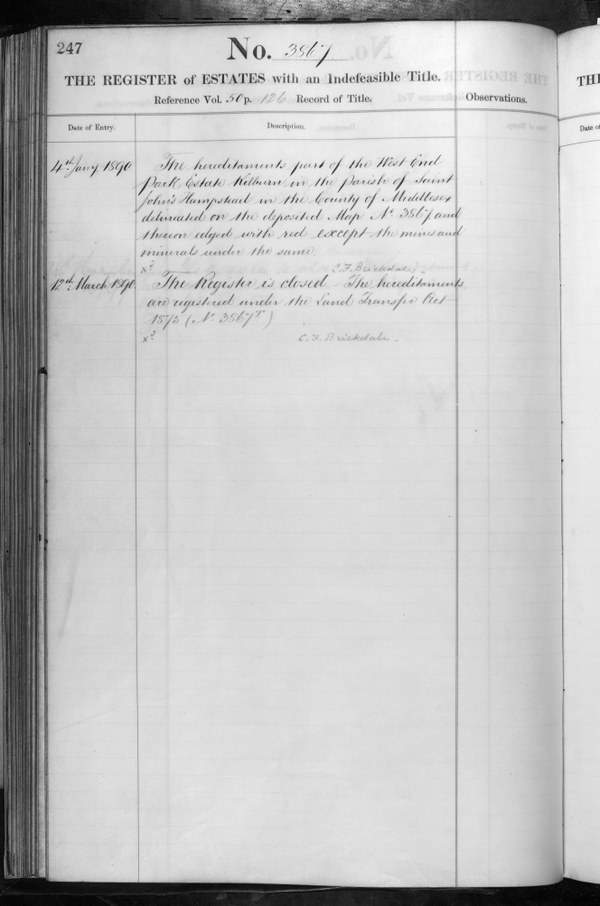 247
No. 3867
THE REGISTER of ESTATES with an Indefeasible Title.
Reference Vol. 50 p. 126 Record of Title.
Observations.
Date of Entry.
Description.
4th Jany 1890
The hereditaments part of the West End
Park Estate Kilburn in the Parish of Saint
John's Hampstead in the County of Middlesex
delineated on the deposited Map No. 3867 and
thereon edged with red except the mines and
minerals under the same
C. F. Brickdale
12th March 1890
The Register is closed The hereditaments
are registered under the Land Transfer Act
1875 (No. 3867T)
C. F. Brickdale
THE
Date o